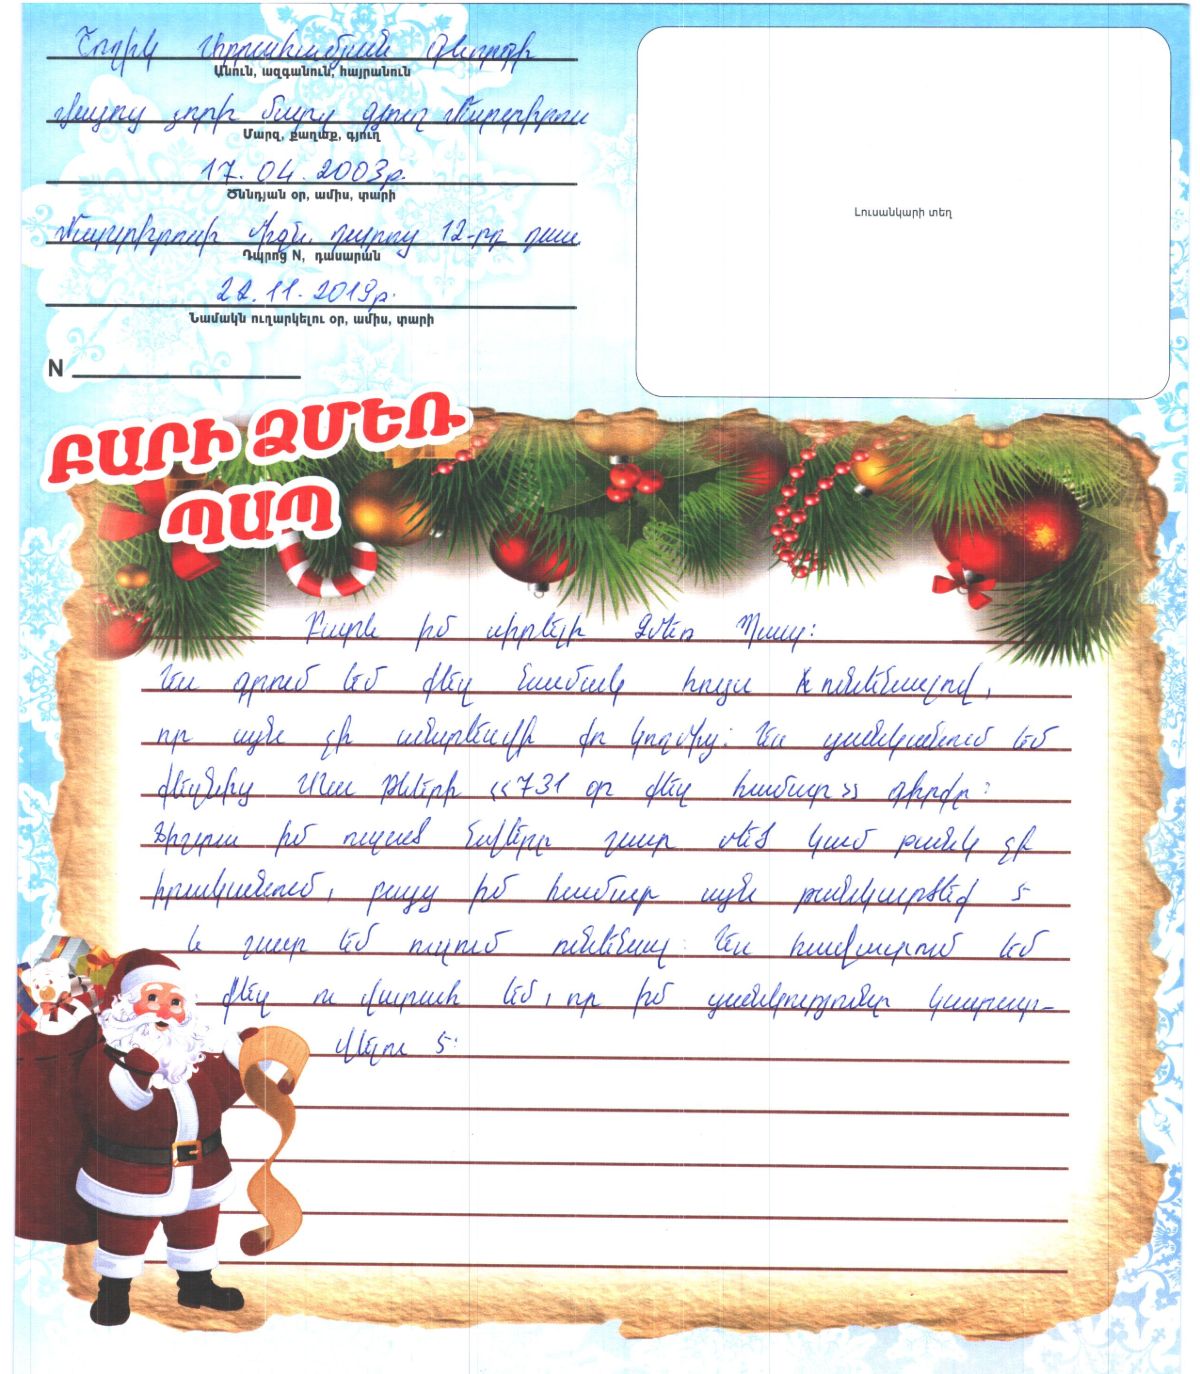 Շողիկ Աբրահամյան Գևորգի
Անուն, ազգանուն, հայրանուն
Վայոց ձորի մարզ գյուղ Մարտիրոս
Մարզ, քաղաք, գյուղ
17.04.2003թ.
Ծննդյան օր, ամիս, տարի
Մարտիրոսի միջն. դպրոց 12-րդ դաս.
Դպրոց N, դասարան
22.11.2019թ.
Նամակն ուղարկելու օր, ամիս, տարի
Լուսանկարի տեղ
N
ԲԱՐԻ ՁՄԵՌ
ՊԱՊ
Բարև իմ սիրելի Ձմեռ Պապ:
Ես գրում եմ քեզ նամակ հույս ունենալով,
որ այն չի անտեսվի քո կողմից: Ես ցանկանում եմ
քեզնից Անա «731 օր քեզ համար» գիրքը:
Միգուցե իմ ուզած նվերը շատ մեծ կամ թանկ չի
իրականում, բայց իմ համար այն թանկարժեք է
և շատ եմ ուզում ունենալ: Ես հավատում եմ
քեզ ու վստահ եմ, որ իմ ցանկությունը կատար-
վելու է: